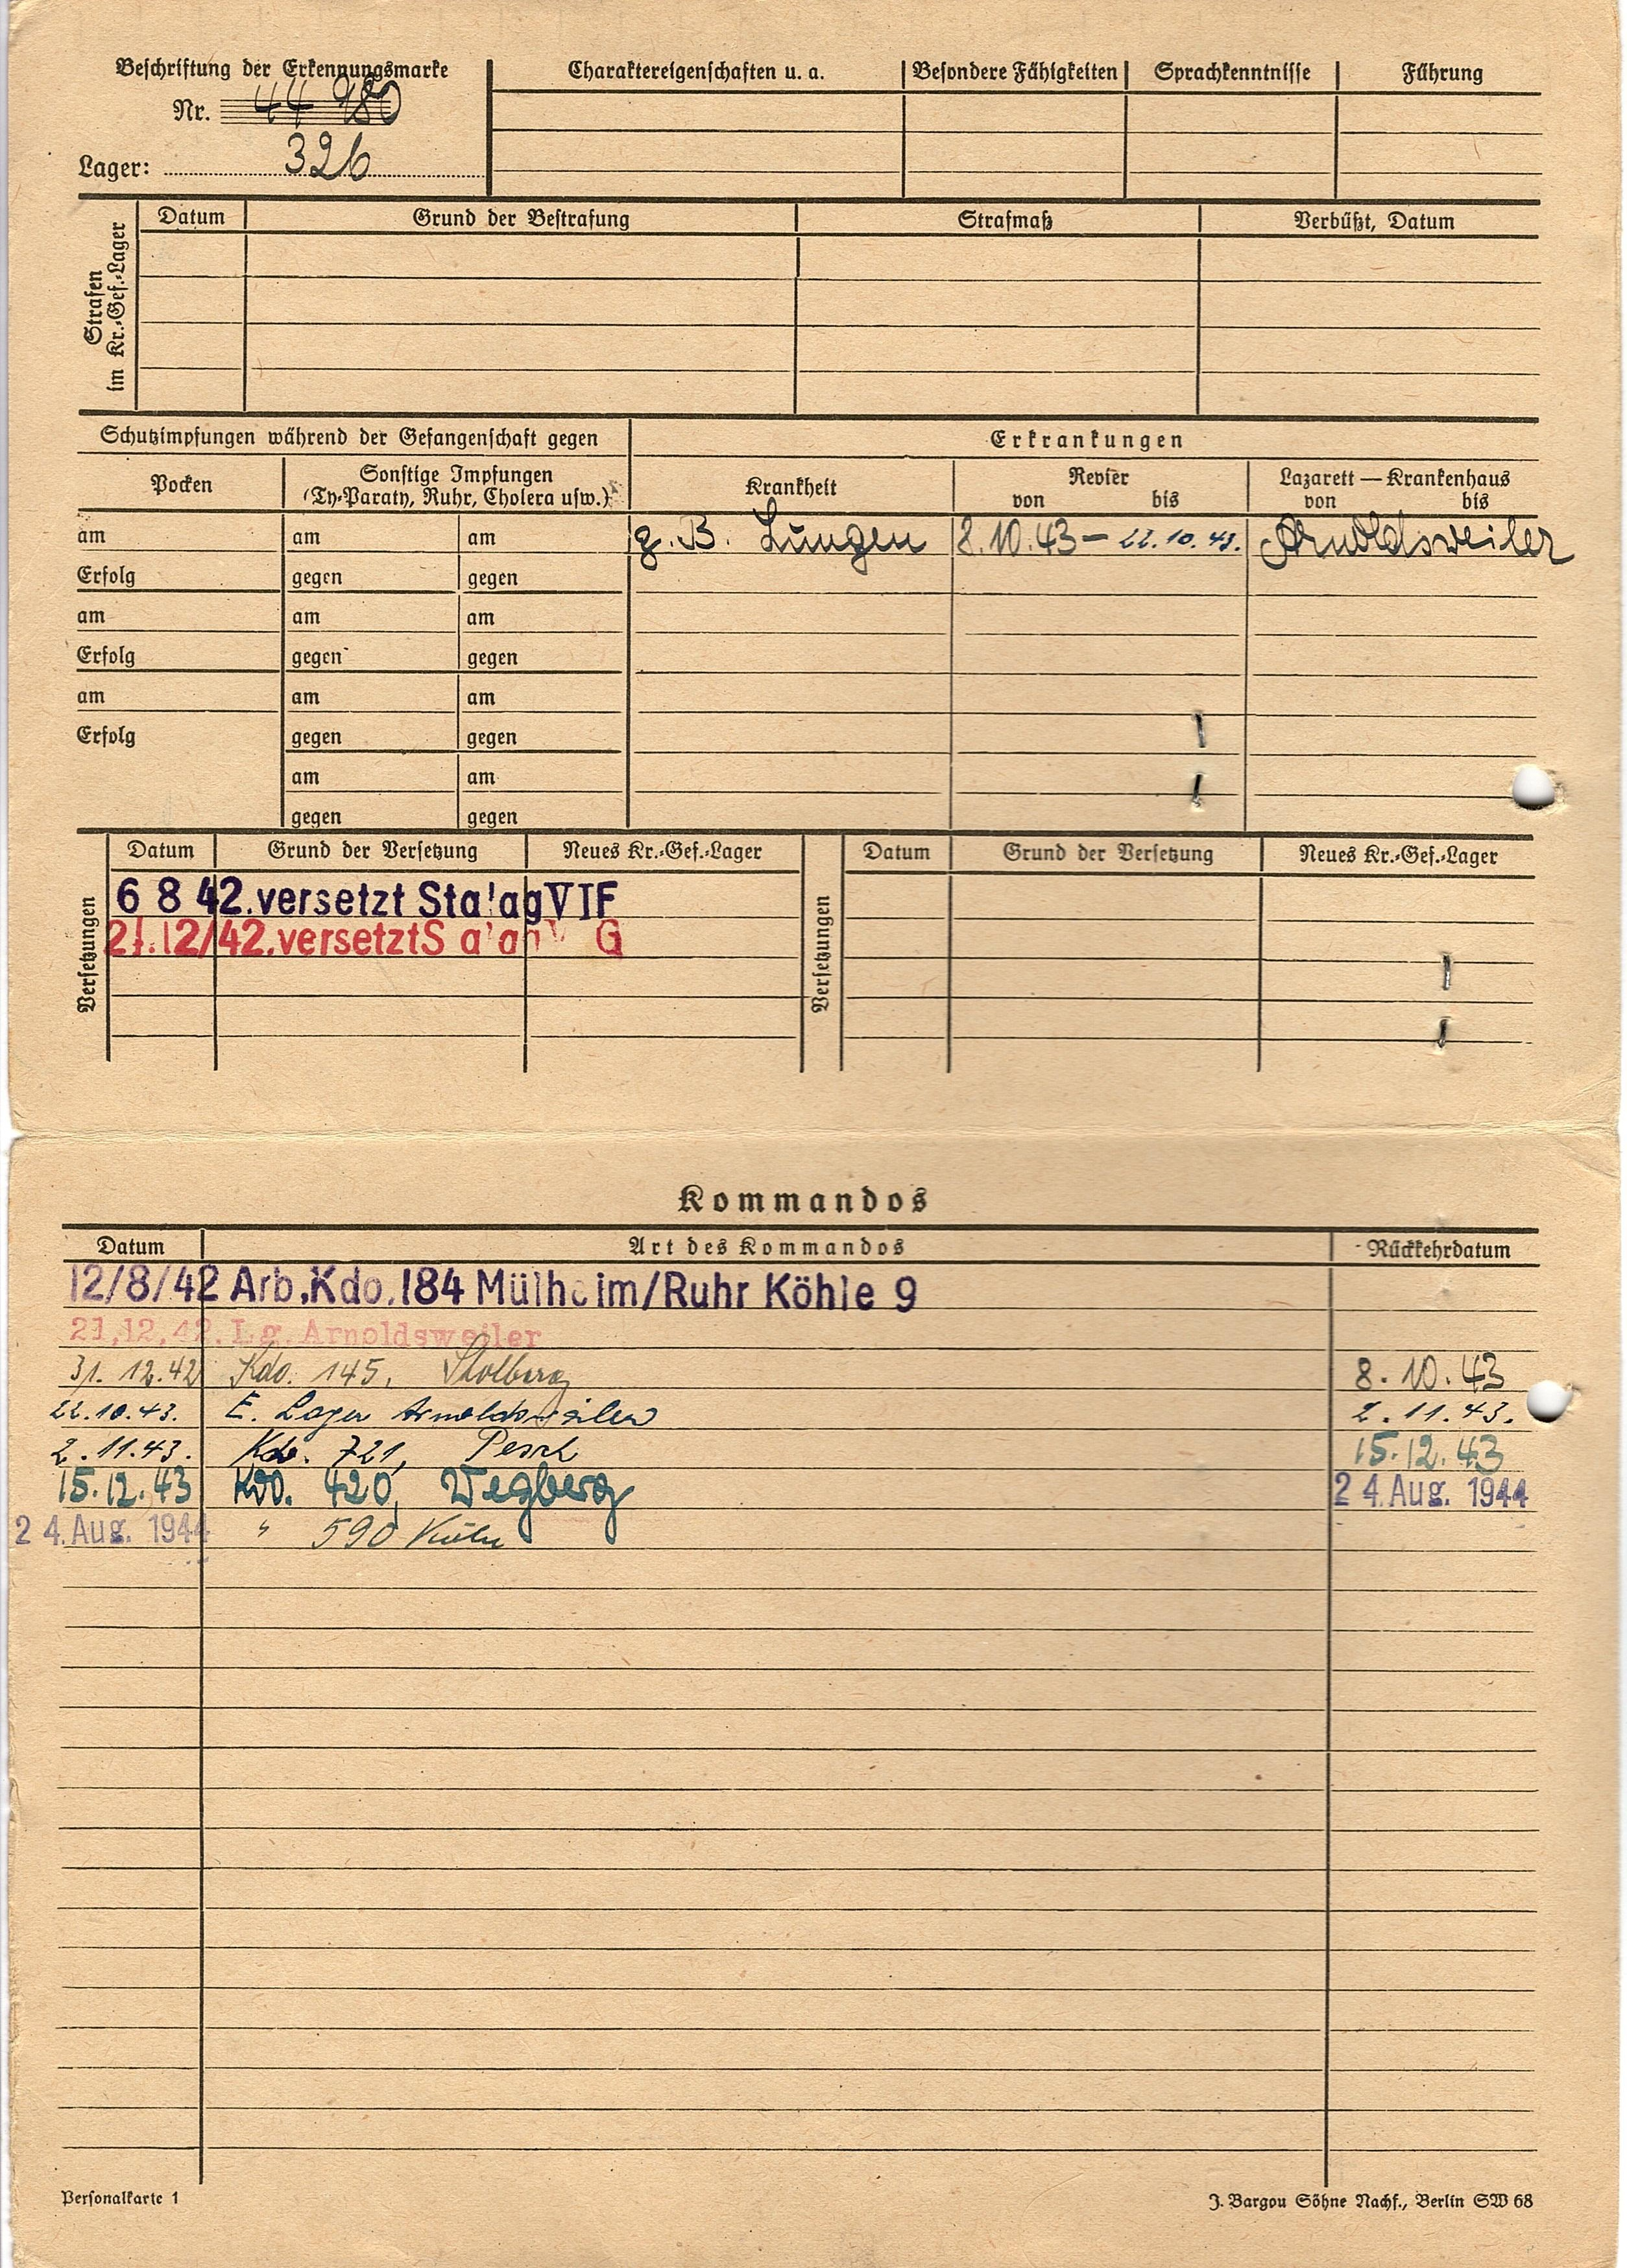 Beschriftung der Erkennungsmarke
Nr. 44 980
Lager: 326
Charaktereigenschaften u. a. Besondere Fähigkeiten Sprachkenntnisse Führung
Strafen im Kr.-Gef.-Lager
Datum Grund der Bestrafung Strafmaß Verbüßt, Datum
Schutzimpfungen während der Gefangenschaft gegen Erkrankungen
Pocken Sonstige Impfungen (Ty-Paraty, Ruhr, Cholera usw.) Krankheit Revier von bis Lazarett — Krankenhaus von bis
am am am z. B. Lungen 8.10.43 – 22.10.43. Arnoldsweiler
Erfolg gegen gegen
am am am
Erfolg gegen gegen
am am am
Erfolg gegen gegen
am am
gegen gegen
Versetzungen Datum Grund der Versetzung Neues Kr.-Gef.-Lager Versetzungen Datum Grund der Versetzung Neues Kr.-Gef.-Lager
6 8 42. versetzt Stalag VI F
21.12/42. versetzt G
Kommandos
Datum Art des Kommandos Rückkehrdatum
12/8/42 Arb.Kdo.184 Mülheim/Ruhr Köhle 9
21,12,42. Lg. Arnoldsweiler
31. 12.42 Kdo. 145, Stolberg 8.10.43
22.10.43. E. Lager Arnoldsweiler 2.11.43.
2.11.43. Kdo. 721, Pesch 15.12.43
15.12.43 Kdo. 420, Wegberg 24. Aug. 1944
24. Aug. 1944 " 590 Köln
Personalkarte 1 J. Bargou Söhne Nachf., Berlin SW 68